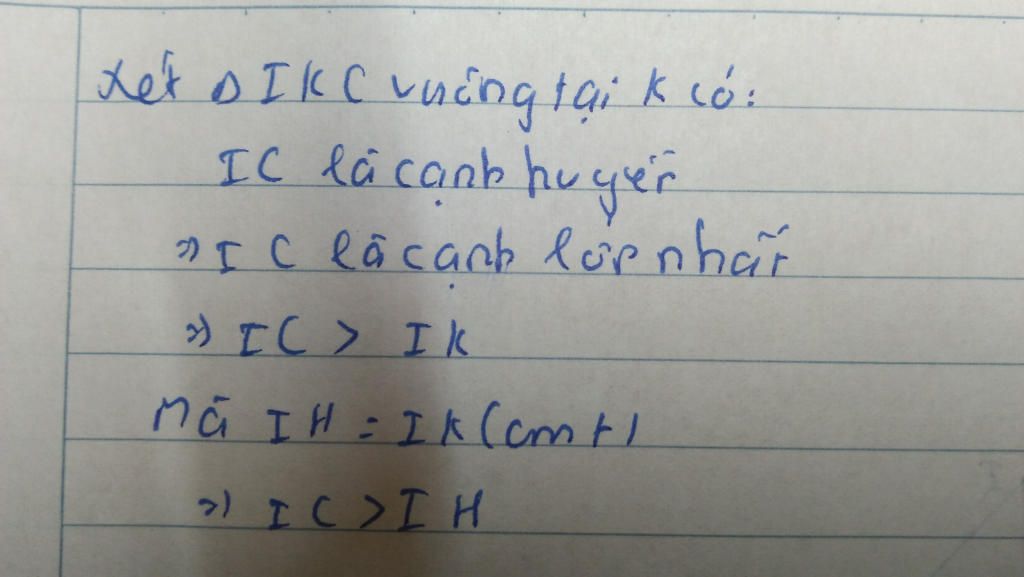 Xét Δ IKC vuông tại K có:
IC là cạnh huyền
=> IC là cạnh lớn nhất
=> IC > IK
Mà IH = IK (cmt)
=> IC > IH